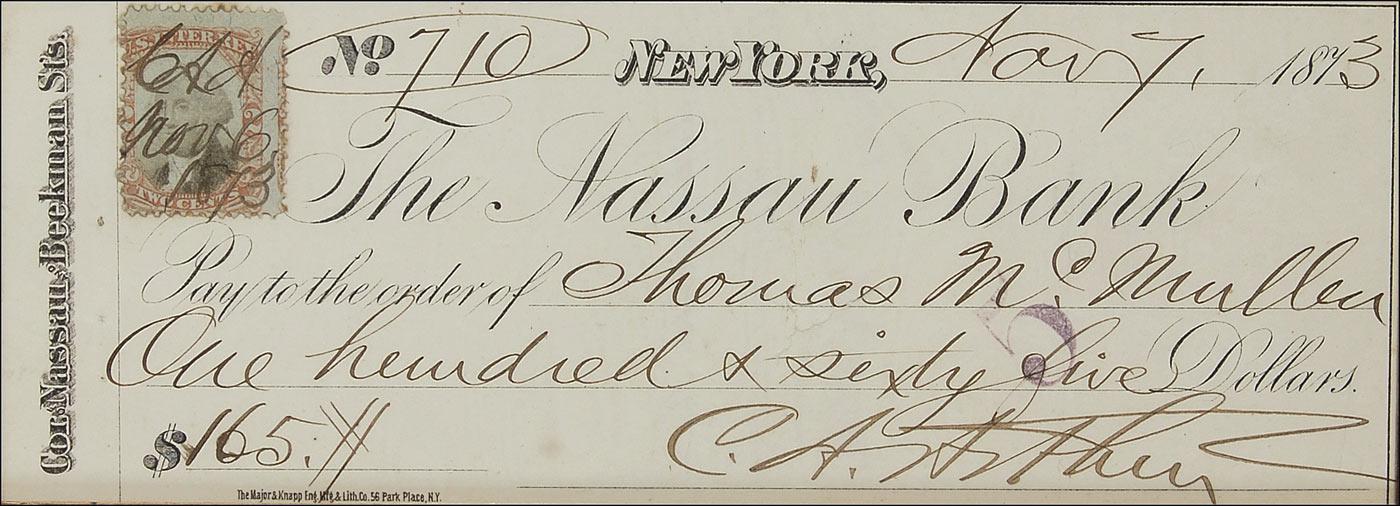 Cor. Nassau & Beekman Sts.
U.S. INTER. REV.
CAA
Nov 6
73
TWO CENTS
No 710 New York, Nov 7, 1873
The Nassau Bank
Pay to the order of Thomas McMullen
One hundred & sixty five Dollars.
5
$165.
C. A. Arthur
The Major & Knapp Eng. Mfg. & Lith. Co. 56 Park Place, N.Y.